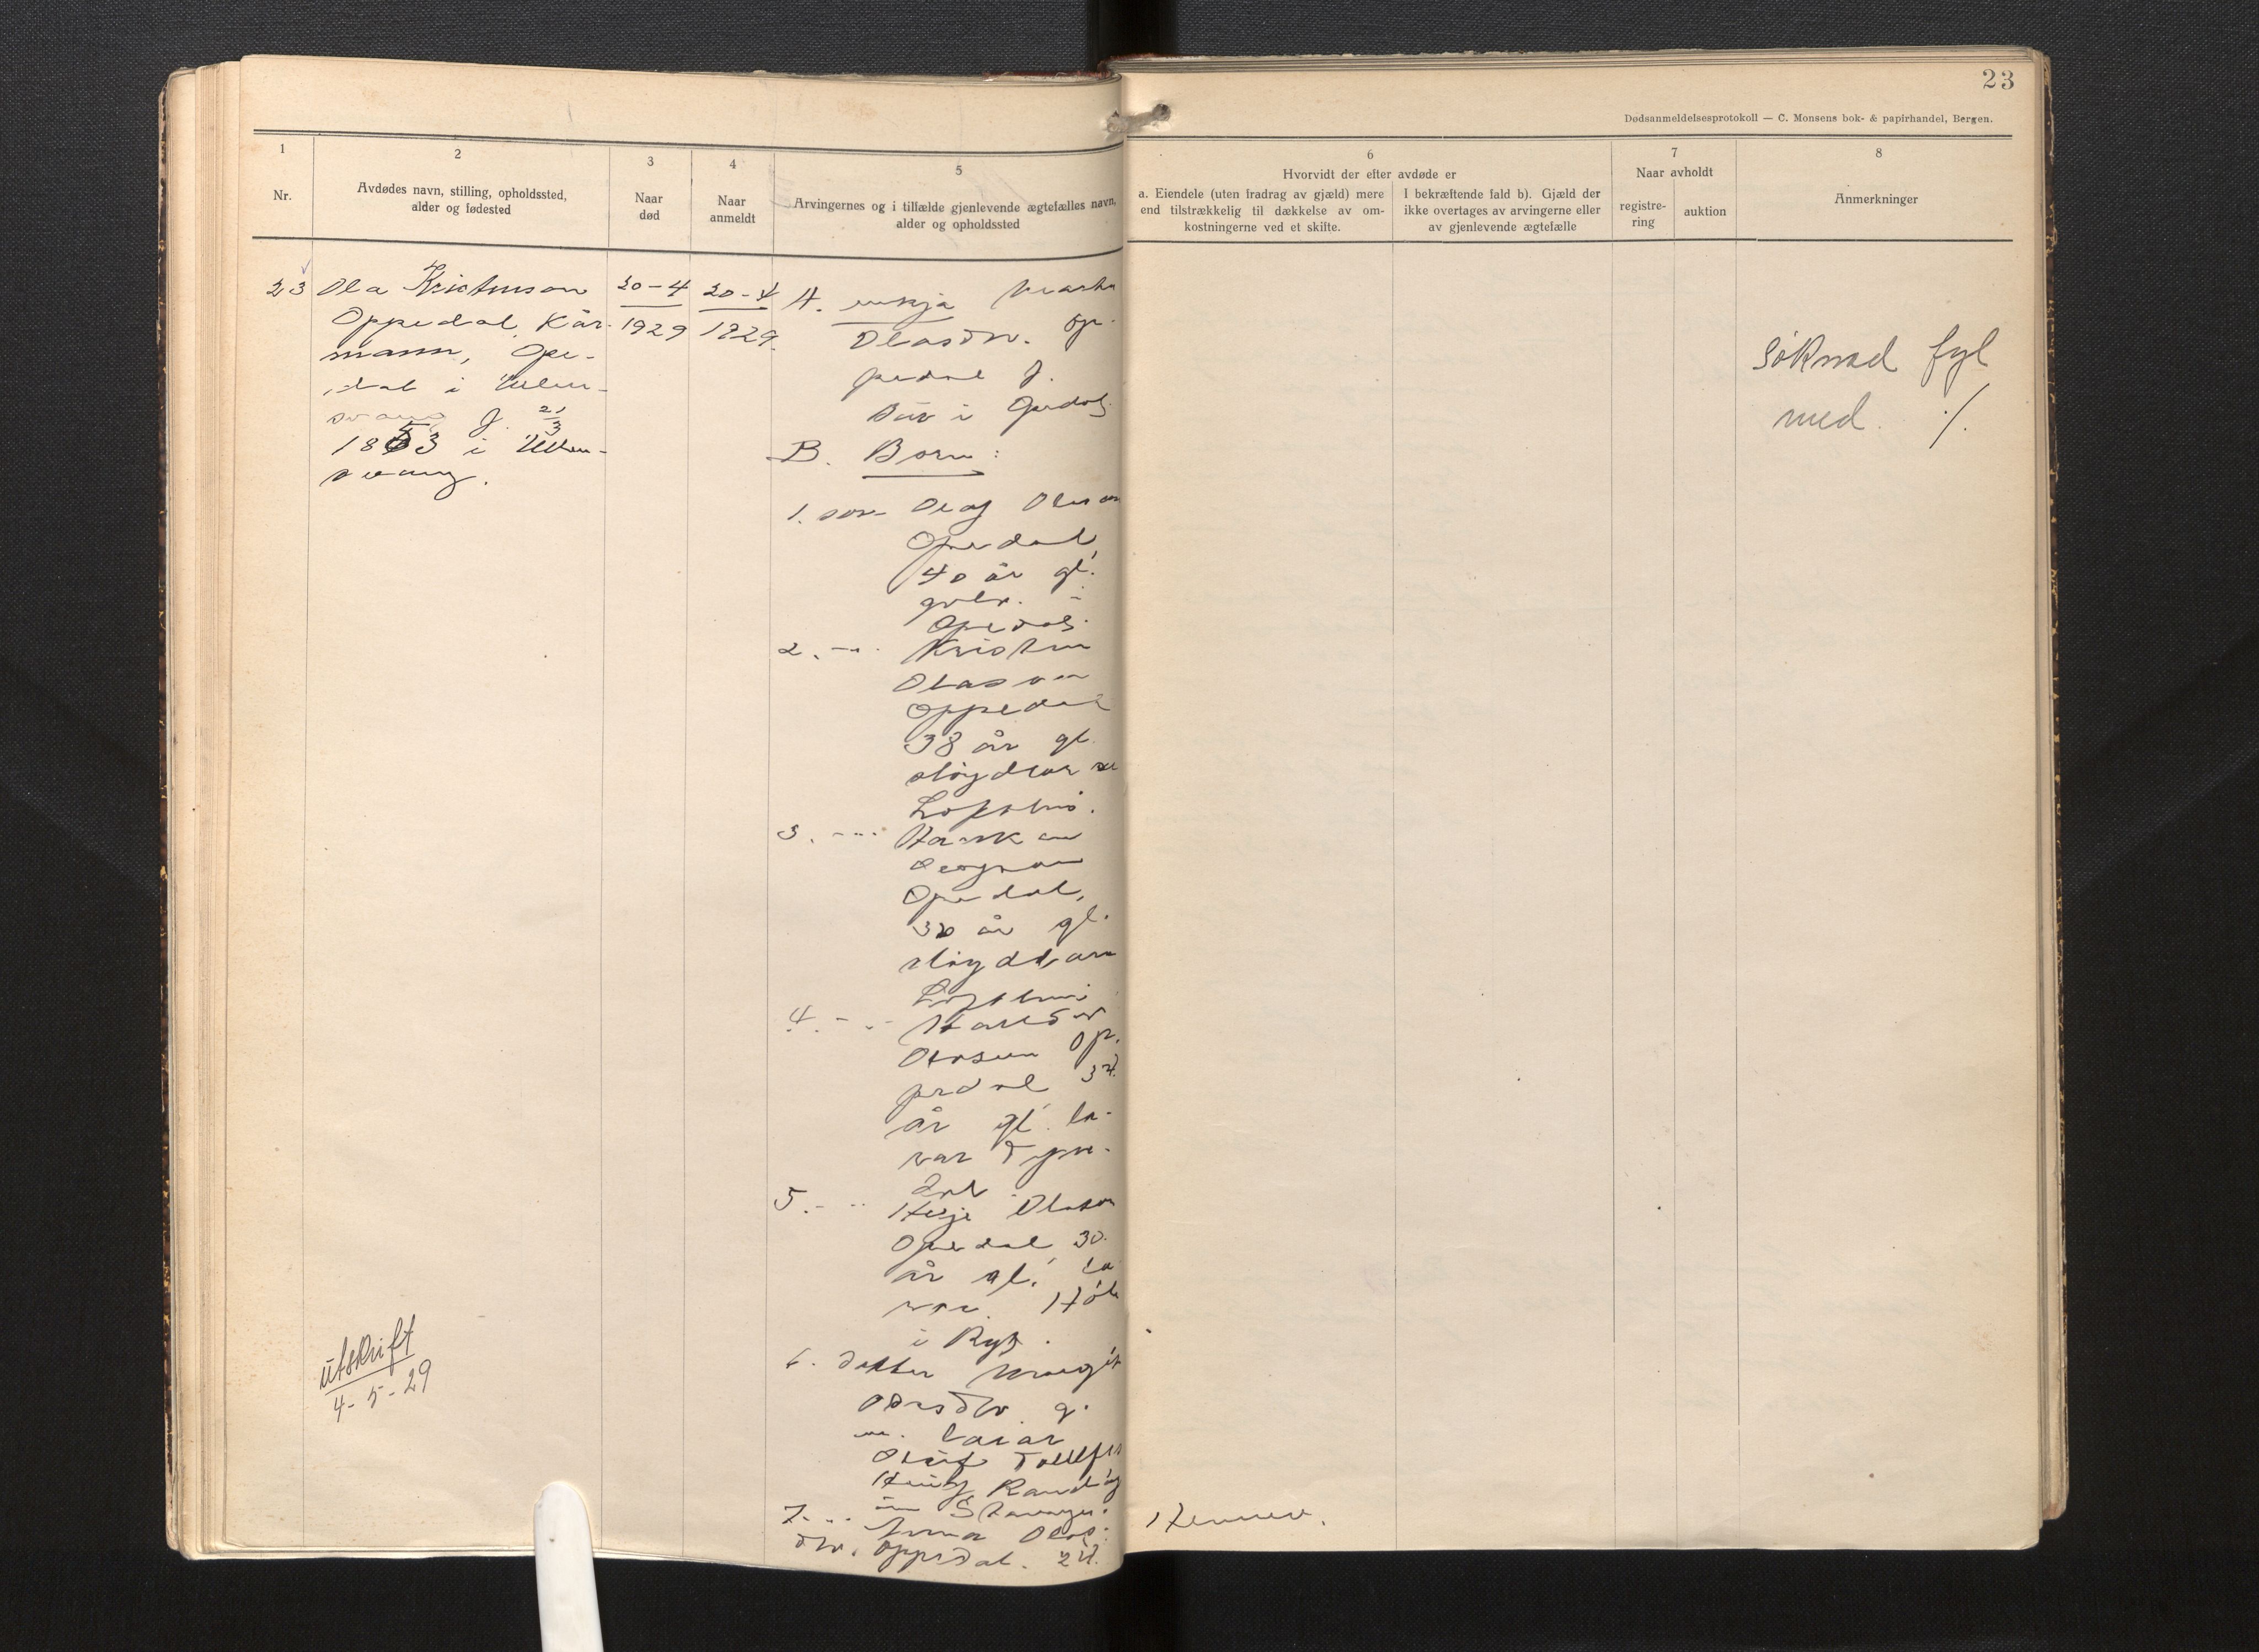 23
Dødsanmeldelsesprotokoll — C. Monsens bok- & papirhandel, Bergen.
1
Nr.
2
Avdødes navn, stilling, opholdssted,
alder og fødested
3
Naar
død
4
Naar
anmeldt
5
Arvingernes og i tilfælde gjenlevende ægtefælles navn,
alder og opholdssted
6
Hvorvidt der efter avdøde er
a. Eiendele (uten fradrag av gjæld) mere
end tilstrækkelig til dækkelse av om-
kostningerne ved et skifte.
I bekræftende fald b). Gjæld der
ikke overtages av arvingerne eller
av gjenlevende ægtefælle
7
Naar avholdt
registre-
ring
auktion
8
Anmerkninger
23
Ola Kristenson
Oppedal, Kår-
mann, Ope-
dal i Ullen-
svang f. 21/3
1853 i Ullen-
svang.
20-4
1929
20-4
1929.
A. enkja
Olasdtr. Op-
pedal f.
i Opedal
B. Born:
1. son Olaf Olason
Opedal,
40 år gl.
i
Opedal.
2. -"- Kristen
Olason
Oppedal
38 år gl.
Lofthus.
3. -"- Haakon
Opedal,
år gl.
Lofthus
4. -"- Halldor
Olason Op-
pedal 34
år gl. læ-
rar
dal
5. -"- Helje Olason
Opedal 30
år gl. læ-
rar
i
6. dotter Margit
Olasdtr. g.
m. lærar
Olav
Stavanger.
7. -"- Anna Olas-
dtr. Oppedal. 24
heime.
Søknad fyl
med. ./.
Utskrift
4-5-29